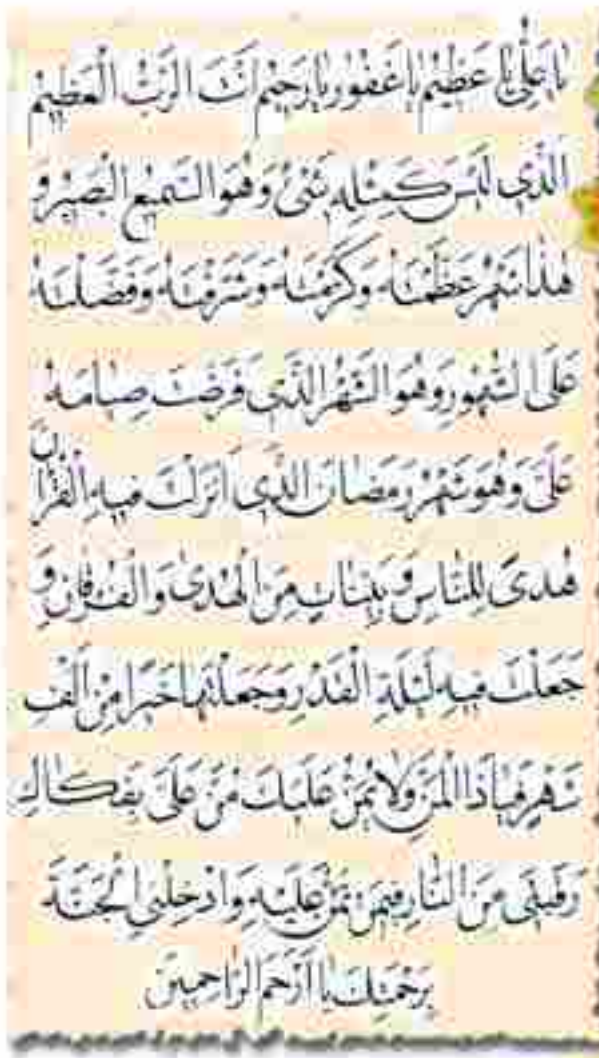 يَا عَلِيُّ يَا عَظِيمُ يَا غَفُورُ يَا رَحِيمُ اَنْتَ الرَّبُّ الْعَظِيمُ
الَّذِي لَيْسَ كَمِثْلِهِ شَيْءٌ وَهُوَ السَّمِيعُ الْبَصِيرُ وَ
هٰذَا شَهْرٌ عَظَّمْتَهُ وَكَرَّمْتَهُ وَشَرَّفْتَهُ وَفَضَّلْتَهُ
عَلَى الشُّهُورِ وَهُوَ الشَّهْرُ الَّذِي فَرَضْتَ صِيَامَهُ
عَلَيَّ وَهُوَ شَهْرُ رَمَضَانَ الَّذِي اَنْزَلْتَ فِيهِ الْقُرْآنَ
هُدًى لِلنَّاسِ وَ بَيِّنَاتٍ مِنَ الْهُدَى وَالْفُرْقَانِ وَ
جَعَلْتَ فِيهِ لَيْلَةَ الْقَدْرِ وَجَعَلْتَهَا خَيْرًا مِنْ اَلْفِ
شَهْرٍ فَيَا ذَا الْمَنِّ وَلَا يُمَنُّ عَلَيْكَ مُنَّ عَلَيَّ بِفَكَاكِ
رَقَبَتِي مِنَ النَّارِ فِيمَنْ تَمُنُّ عَلَيْهِ وَاَدْخِلْنِي الْجَنَّةَ
بِرَحْمَتِكَ يَا اَرْحَمَ الرَّاحِمِينَ